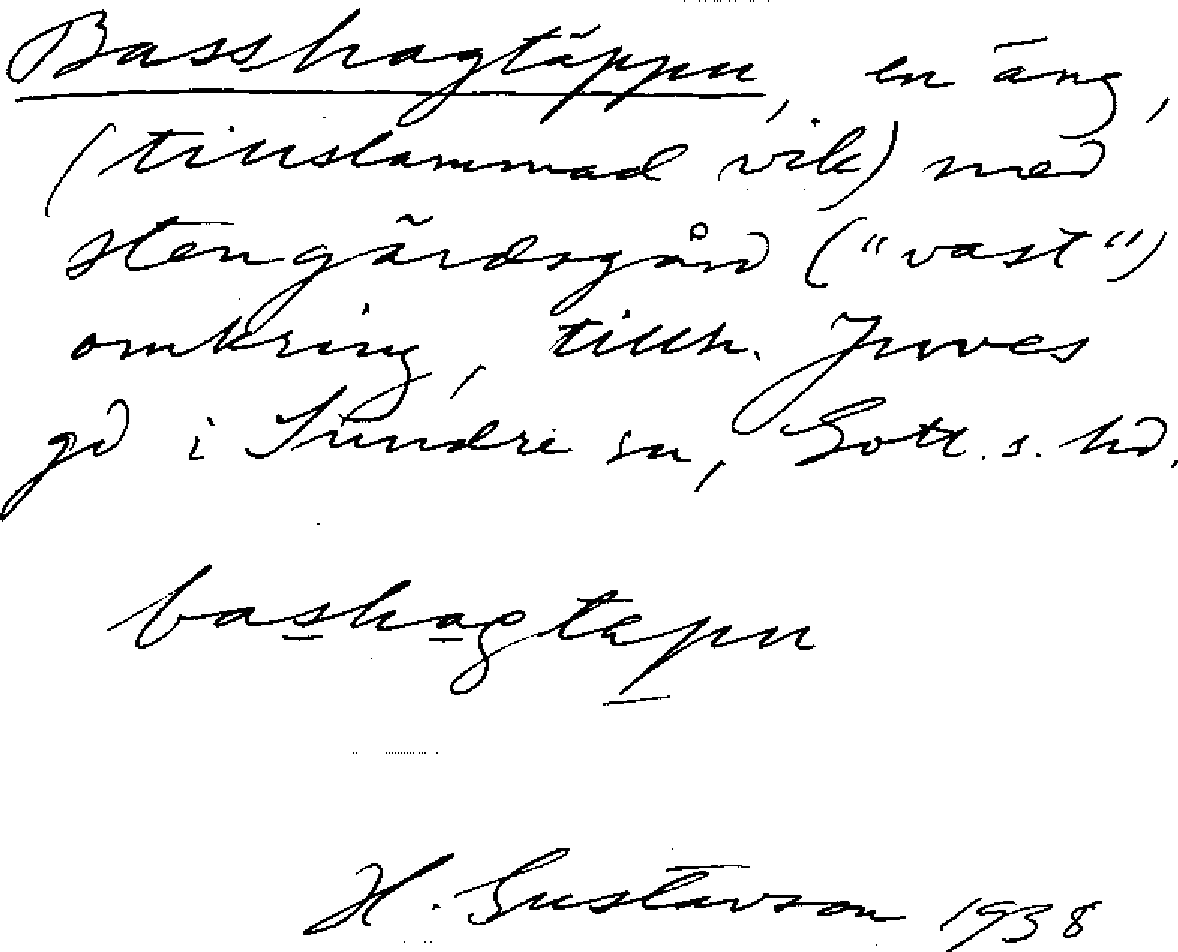 Basshagtäppu, en äng,
(tillslammad vik) med
stengärdsgård ("vast")
omkring, tillh. Juves
gd i Sundre sn, Gotl. s. hd.
bashagtapu
H. Gustavson 1938